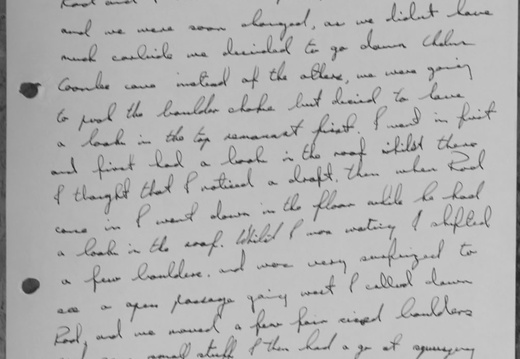 Rod and I
and we were soon changed, as we didnt have
much carbide we decided to go down
Coombe cave instead of the others, we were going
to push the boulder choke but decied to have
a look in the top remanant first. I went in first
and first had a look in the roof whilst there
I thought that I noticed a draft, then when Rod
came in I went down in the floor while he had
a look in the roof. Whilst I was wating I shifted
a few boulders. and was very surprized to
see a open passage going west I called down
Rod, and we moved a few fair sized boulders
small stuff I then had a go at squeezing